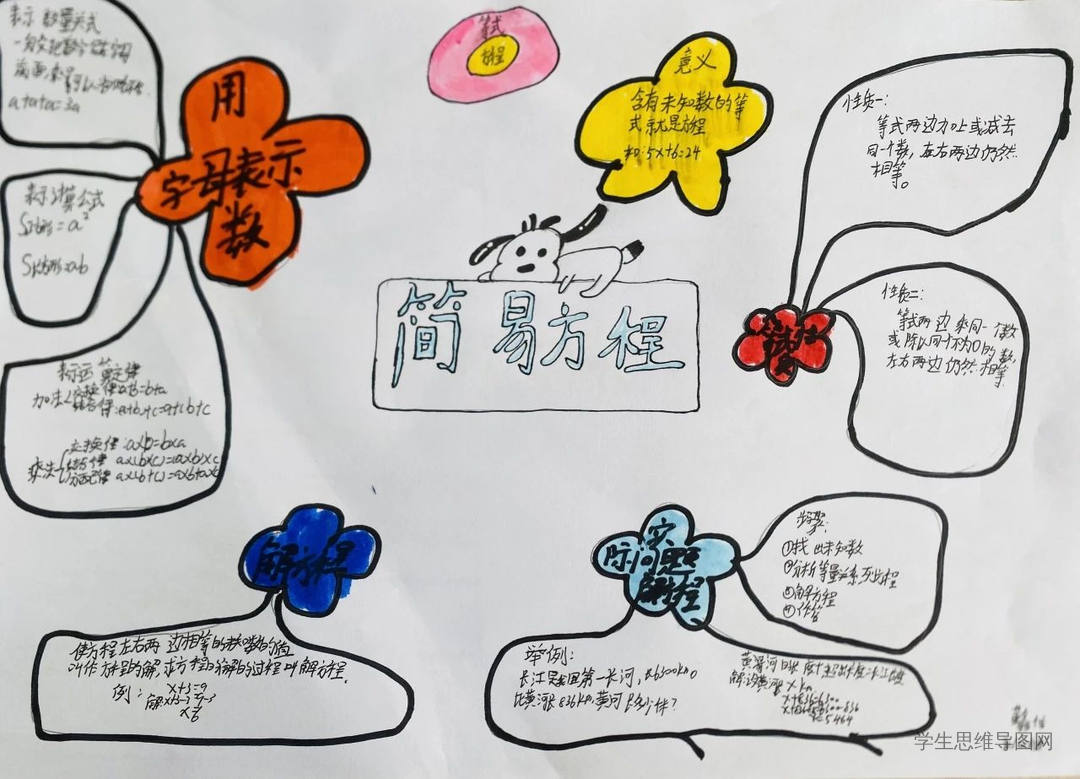 表示数量关式
a+a+a=3a
用
字母表示
数
表示计算公式
S正方形=a²
S长方形=ab
表示运算定律
加法
交换律:a+b=b+a
结合律:a+b+c=a+(b+c
乘法
交换律:axb=bxa
结合律 ax(bxc)=(axb)xc
分配律 ax(b+c)=axb+axc
等式
方程
意义
含有未知数的等
式就是方程
如:5x+6=24
简易方程
性质一:
等式两边加上或减去
同一个数,左右两边仍然
相等。
等式的性质
性质二:
等式两边乘同一个数
或除以同一个不为0的数,
左右两边仍然相等
解方程
使方程左右两边相等的未知数的值
叫作方程的解,求方程的解的过程叫解方程。
例:
x+3=9
解:x+3-3=9-3
x=6
实
际问题
解方程
步骤:
①找出未知数
②分析等量关系列方程
③解方程
④作答
举例:
长江是我国第一长河,长6300km。
比黄河长836km,黄河长多少千米?
黄河的长度+超出长度=长江长度
解:设黄河长xkm
x+836=6300
x+836-836=6300-836
x=5464
学生思维导图网